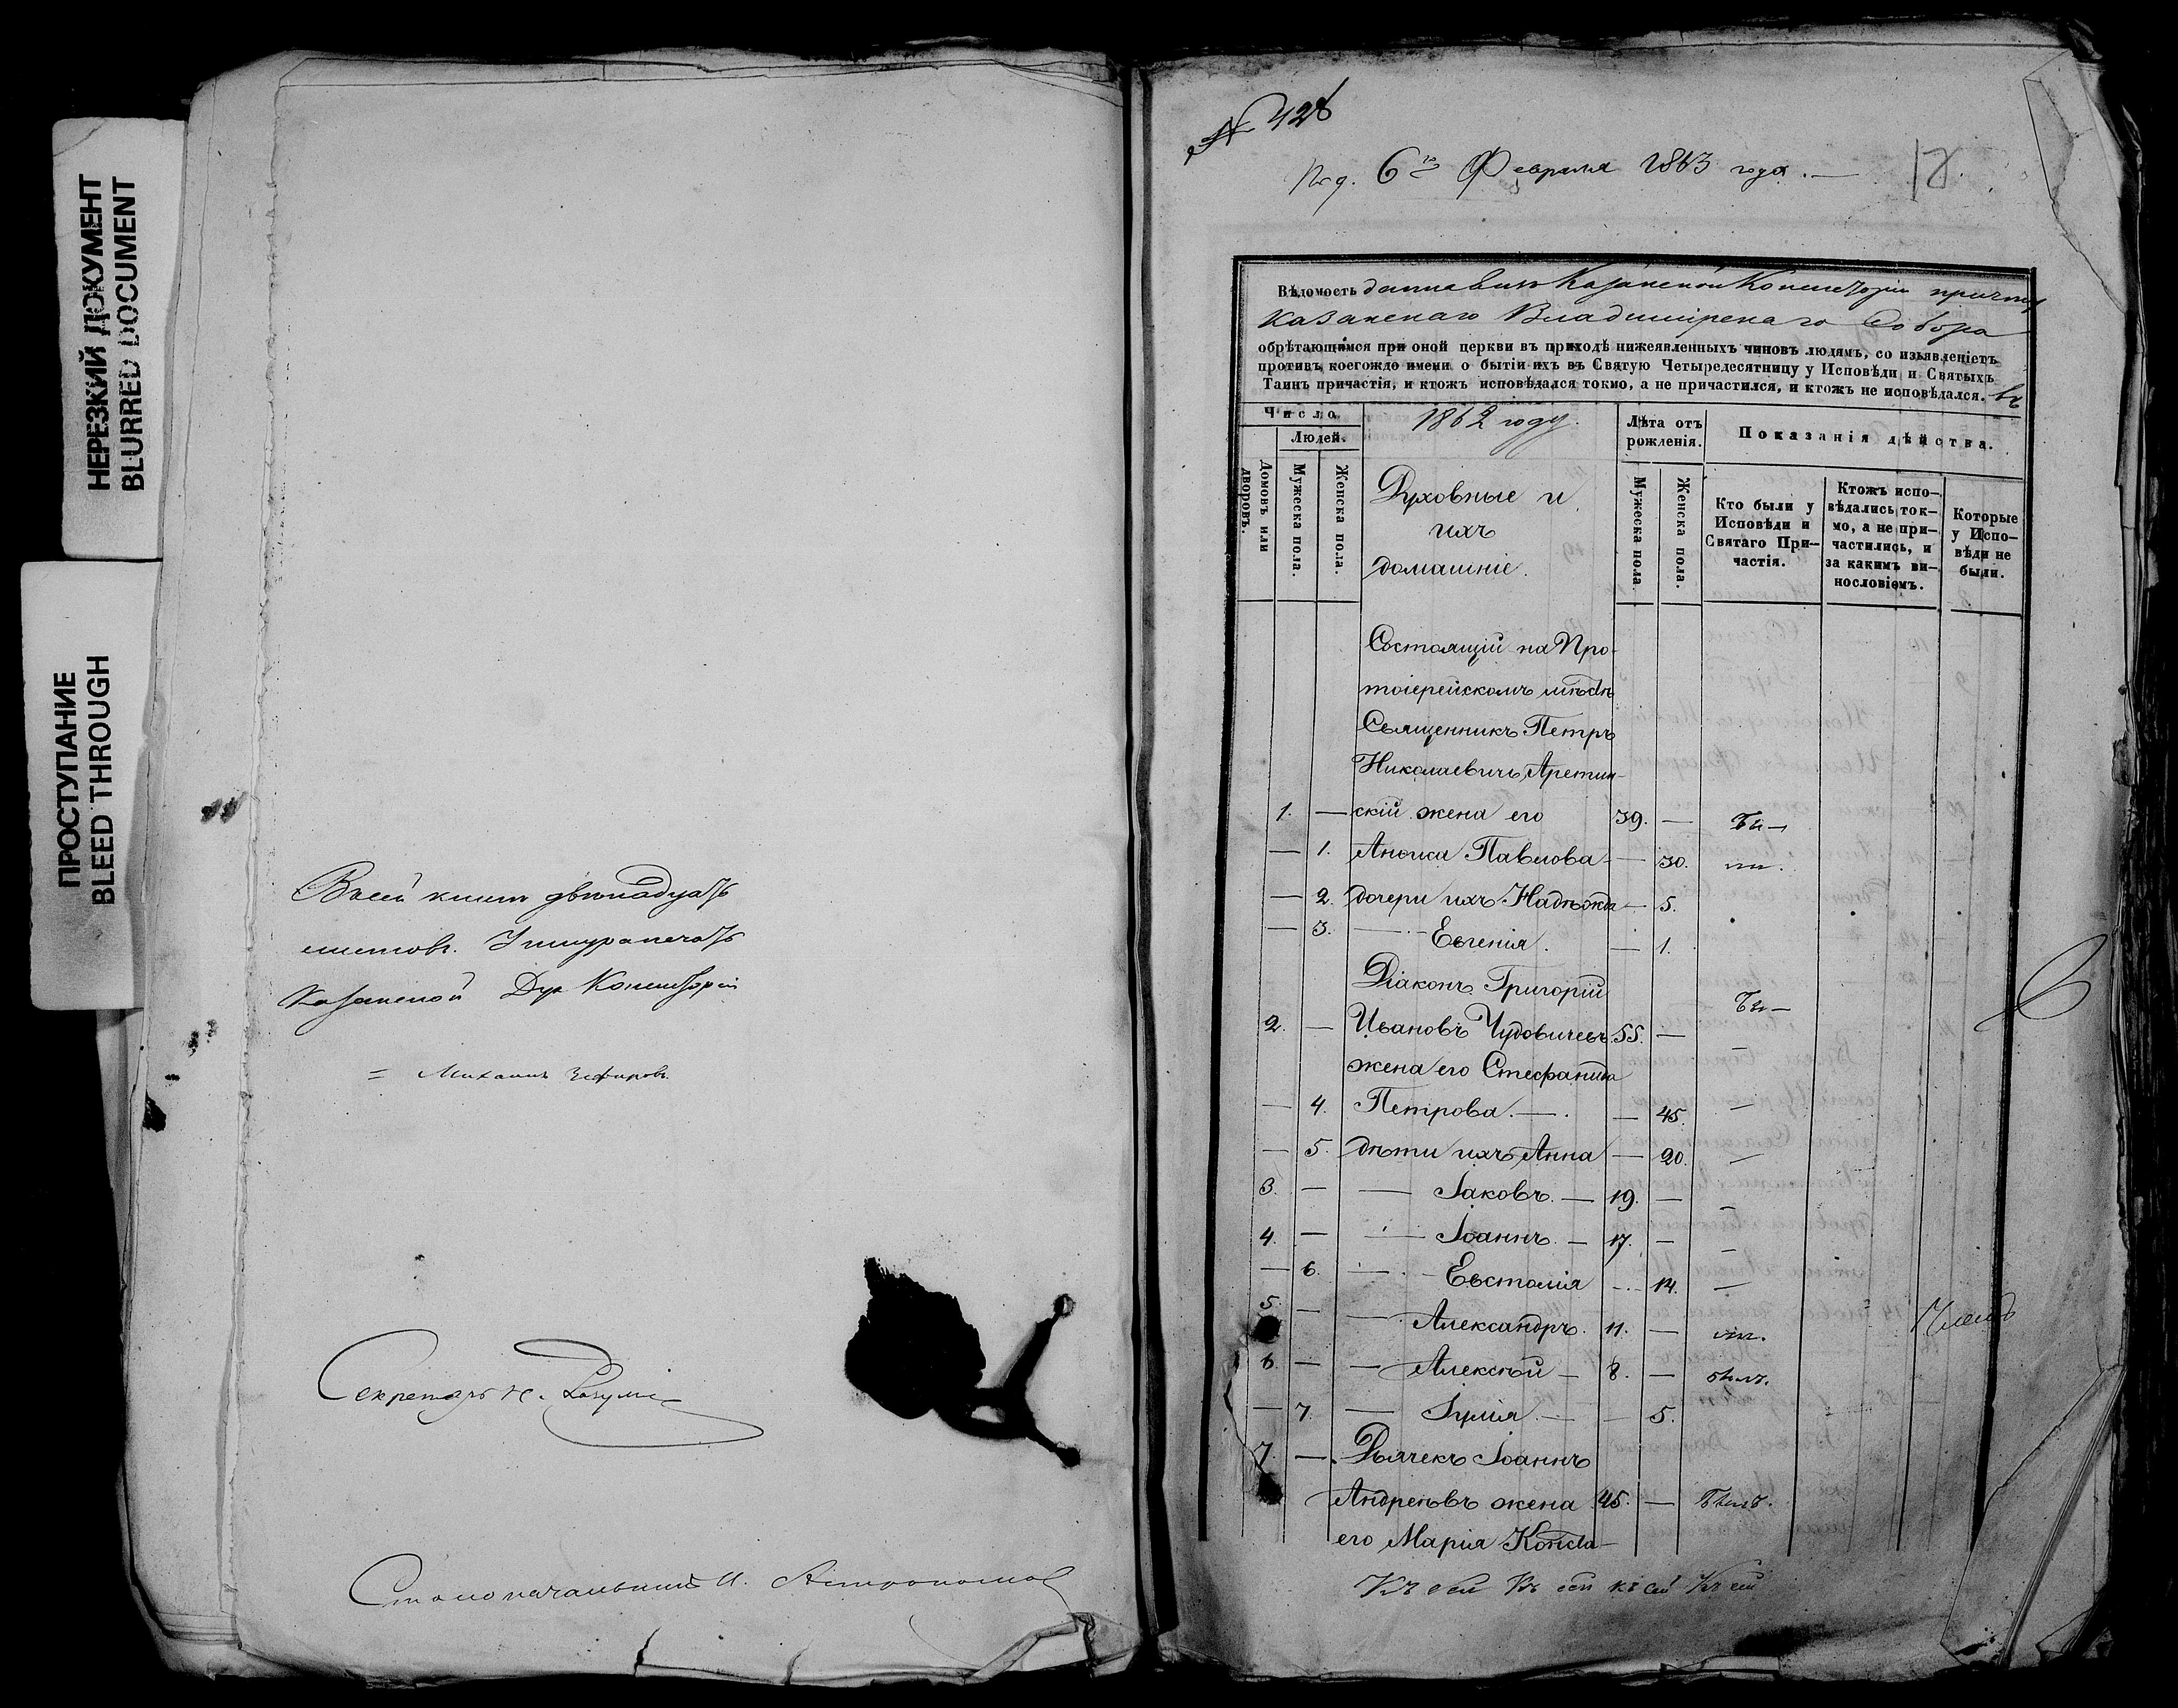 НЕРЕЗКИЙ ДОКУМЕНТ
BLURRED DOCUMENT
ПРОСТУПАНИЕ
BLEED THROUGH
Въ сей книгѣ двенадцать
листовъ. У шнура печать
Казанской Дух Консисторіи
= Михаилъ Зефировъ.
Секретарь
Столоначальникъ И. Астрономовъ
№ 428
Под. 6го Февраля 1863 года. —
12.
Вѣдомость данная изъ Казанской Консисторіи причту
Казанскаго Владимірскаго Собора
обрѣтающимся при оной церкви въ приходѣ нижеявленныхъ чиновъ людямъ, со изъявленіетъ
противъ коегождо имени о бытіи ихъ въ Святую Четыредесятницу у Исповѣди и Святыхъ
Таинъ причастія, и ктожъ исповѣдался токмо, а не причастился, и ктожъ не исповѣдался. въ
1862 году.
Число
Людей.
Домовъ или дворовъ.
Мужеска пола.
Женска пола.
Духовные и
ихъ
домашніе.
Лѣта отъ рожденія.
Мужеска пола.
Женска пола.
Показанія дѣйства.
Кто были у Исповѣди и Святаго При— частія.
Ктожъ испо— вѣдались ток— мо, а не при— частились, и за какимъ ви— нословіемъ.
Которые у Испо— вѣди не были.
Состоящій на Про-
тоіерейскомъ мѣстѣ
Священникъ Петръ
Николаевичъ Аретин-
1. — скій жена его 39. —
— 1. Павлова — — 30.
— 2. дочери ихъ Надежда — 5.
— 3. — Евгенія. — 1.
Діаконъ Григорій
2. — Ивановъ Чудовичевъ 55. —
жена его Стефанида
— 4. Петрова. — . — 45.
— 5. дѣти ихъ Анна — 20. —
3. — — Іаковъ. — 19. — —
4. — — Іоаннъ. — 17. — —
— 6. — Евстолія — 14. —
5. — — Александръ. 11. —
6. — — Алексѣй — 8. —
— 7. — Іулія. — — 5.
7. — Дьячекъ Іоаннъ
Андреевъ жена 45. —
его Марія Конста-
Къ сей Къ сей къ сей Къ сей